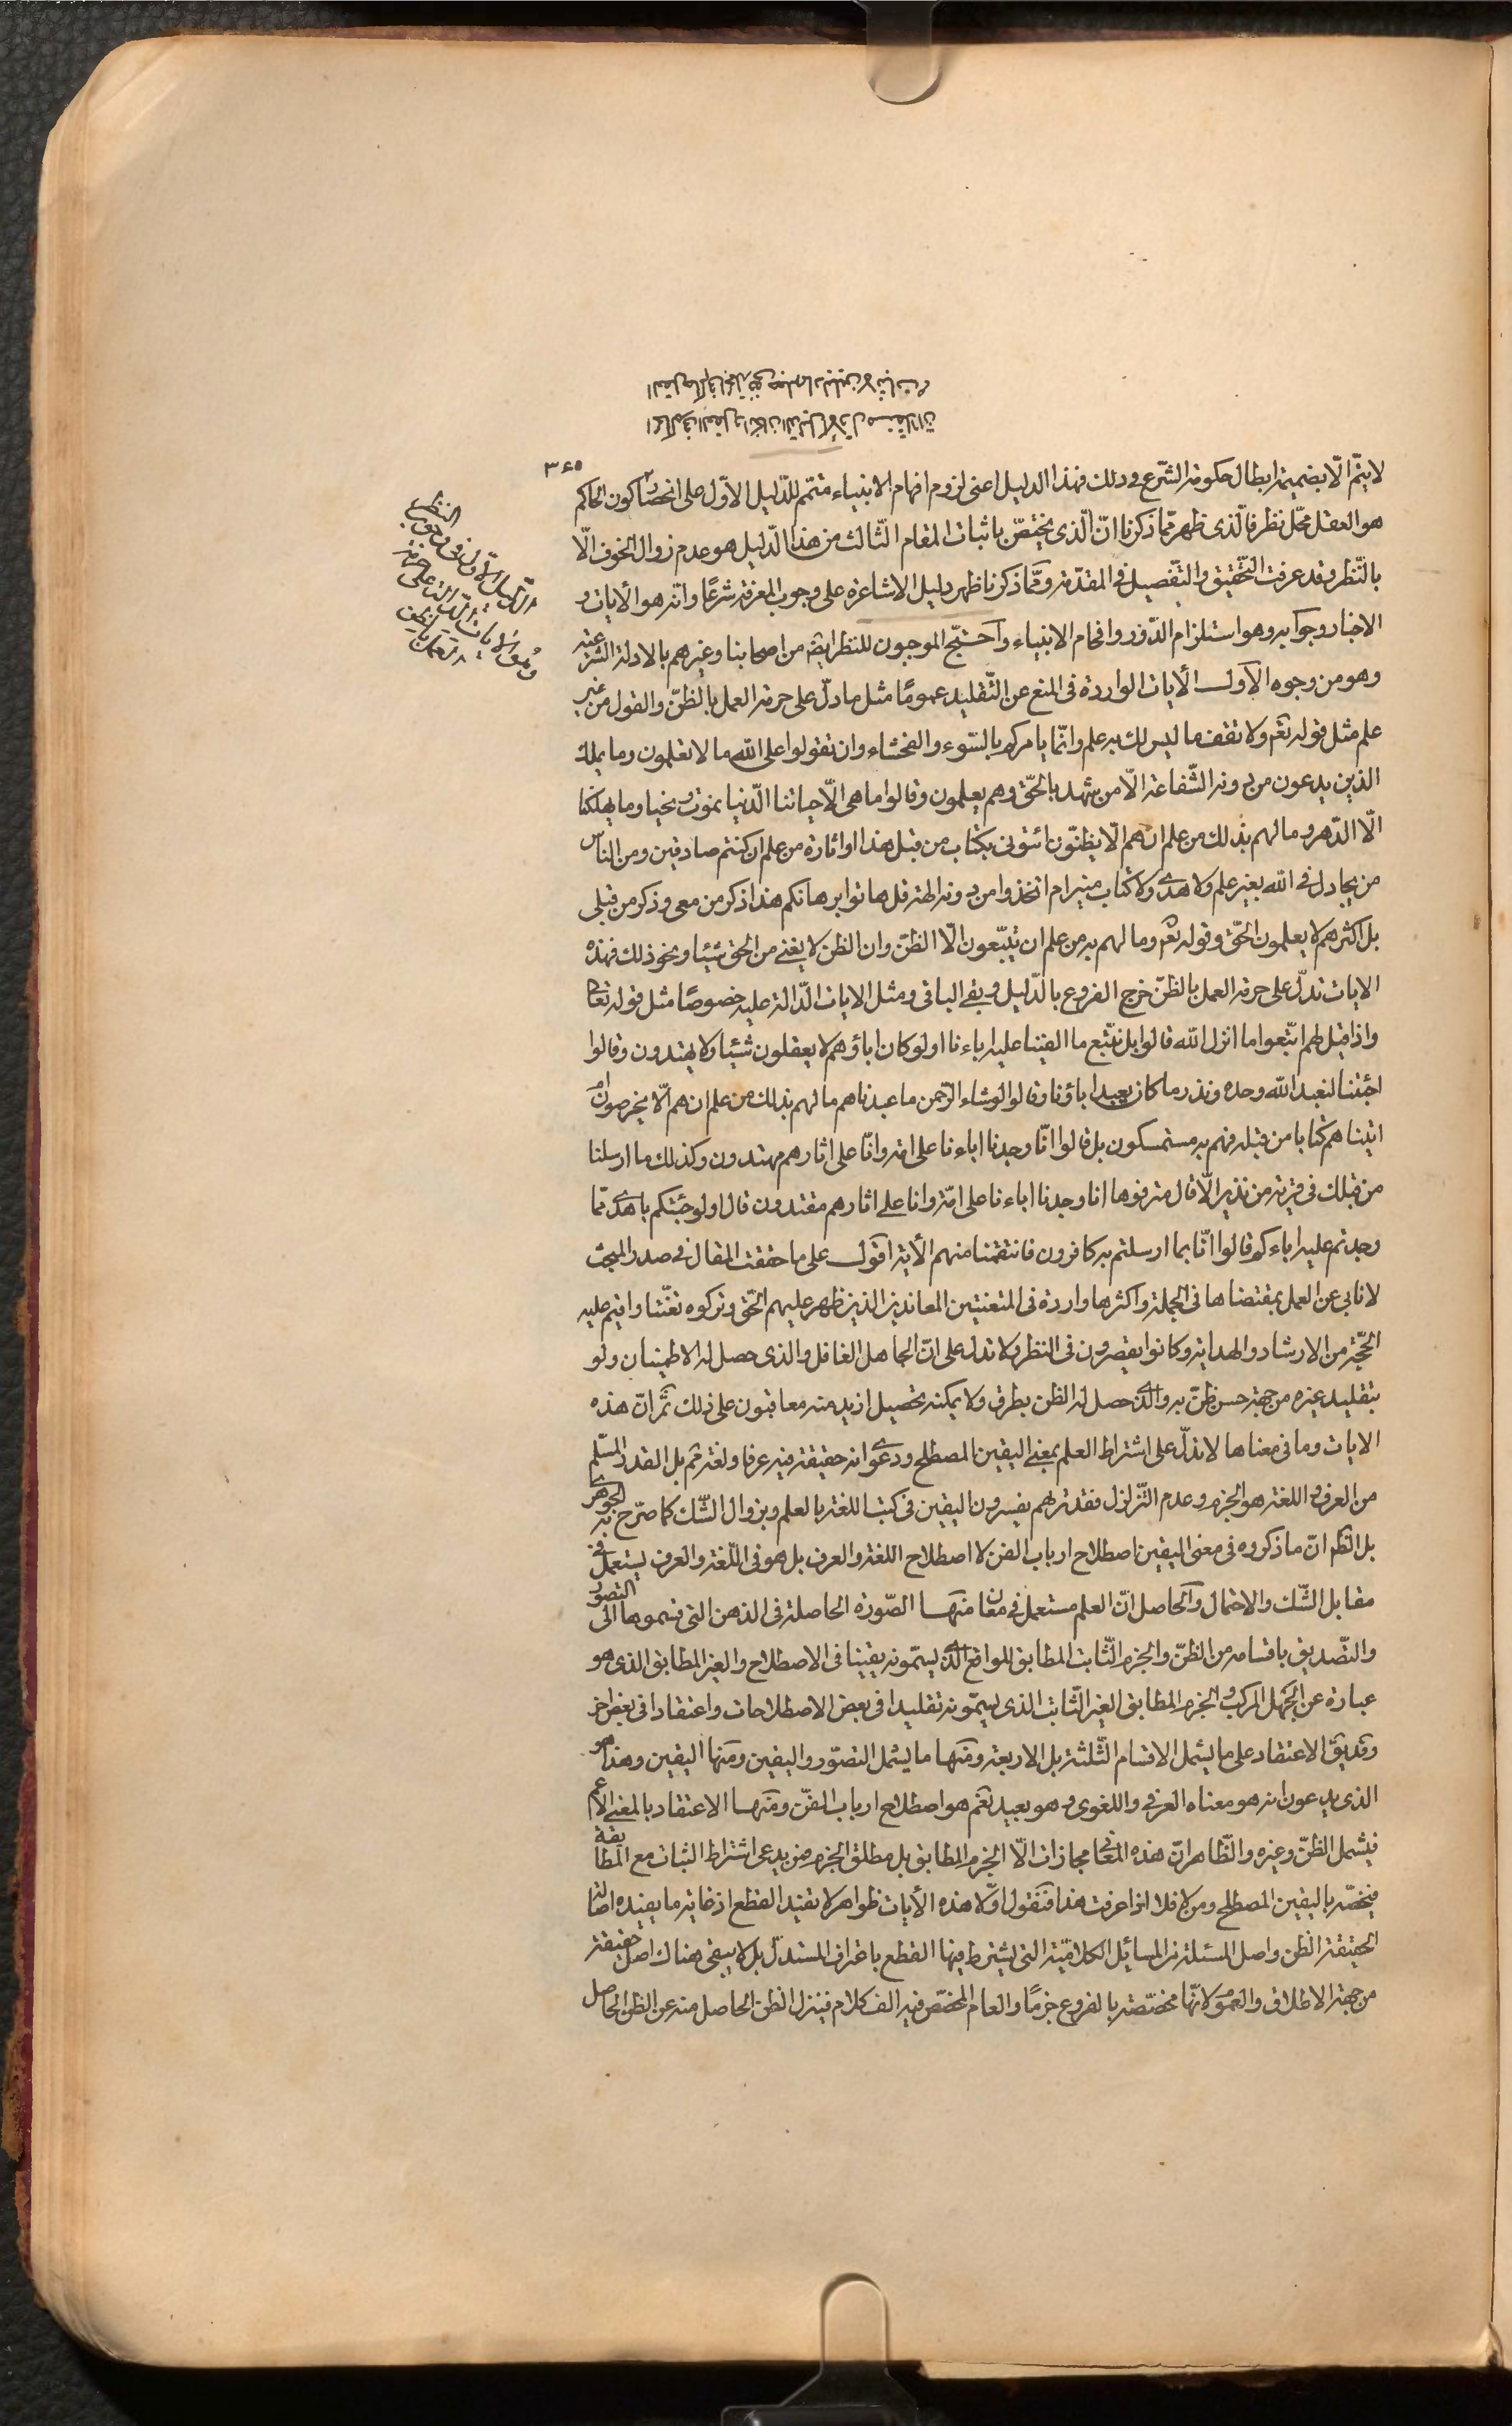 ٣٤٥
لا يتمّ الّا بضميمة ابطال حكومة الشّرع فى ذلك فهذا الدليل اعنى لزوم افهام الانبياء متمّم للدّليل الاوّل على انحصار كون الحاكم
هو العقل محّل نظر فالّذى ظهر ممّا ذكرنا انّ الّذى يختصّ باثبات المقام الثّالث من هذا الدّليل هو عدم زوال الخوف الّا
بالنّظر وقد عرفت التّحقيق والتّفصيل فى المقدّمة وممّا ذكرنا ظهر دليل الاشاعرة على وجوب المعرفة شرعًا وانّه هو الأيات و
الاخبار وجوابه وهو استلزام الدّور وافحام الانبياء واحتجّ الموجبون للنظر ايضا من اصحابنا وغيرهم بالادلة الشرعيّة
وهو من وجوه الاول الأيات الواردة فى المنع عن التّقليد عمومًا مثل ما دلّ على حرمة العمل بالظنّ والقول من غير
علم مثل قوله تعم ولا تقف ما ليس لك به علم وانّما يامركم بالسّوء والفحشاء وان تقولوا على اللّه ما لا تعلمون وما يملك
الذين يدعون من دونه الشّفاعة الّا من شهد بالحّق وهم يعلمون وقالوا ما هى الّا حياتنا الدّنيا نموت ونحيا وما يهلكنا
الّا الدّهر وما لهم بذلك من علم ان هم الّا يظنّون ائتونى بكتاب من قبل هذا او اثارة من علم ان كنتم صادقين ومن النّاس
من يجادل فى اللّه بغير علم ولا هدى ولا كتاب منير ام اتخذوا من دونه الهة قل هاتوا برهانكم هذا ذكر من معى وذكر من قبلى
بل اكثرهم لا يعلمون الحّق وقوله تعم وما لهم به من علم ان يتّبعون الّا الظنّ وان الظن لا يغنى من الحق شيئا ونحو ذلك فهذه
الايات تدلّ على حرمة العمل بالظنّ خرج الفروع بالدّليل وبقى الباقى ومثل الايات الدّالة عليه خصوصًا مثل قوله تعالى
واذا قيل لهم اتّبعوا ما انزل اللّه قالوا بل نتّبع ما الفينا عليه اباءنا اولو كان اباؤهم لا يعقلون شيئا ولا يهتدون وقالوا
اجئتنا لنعبد اللّه وحده ونذر ما كان يعبد اباؤنا وقالوا لو شاء الرّحمن ما عبدناهم ما لهم بذلك من علم ان هم الّا يخرصون ام
اتيناهم كتابا من قبله فهم به مستمسكون بل قالوا انّا وجدنا اباءنا على امّة وانّا على اثارهم مهتدون وكذلك ما ارسلنا
من قبلك فى قرية من نذير الّا قال مترفوها انا وجدنا اباءنا على امّة وانا على اثارهم مقتدون قال اولو جئتكم باهدى ممّا
وجدتم عليه اباءكم قالوا انّا بما ارسلتم به كافرون فانتقمنا منهم الأية اقول على ما حققت المقال فى صدر المبحث
لا نابى عن العمل بمقتضاها فى الجملة واكثرها واردة فى المتعنتين المعاندين الذين ظهر عليهم الحّق وتركوه تعنّتا واقيم عليه
الحّجة من الارشاد والهداية وكانوا يقصرون فى النظر ولا تدل على انّ الجاهل الغافل والذى حصل له الاطمينان ولو
بتقليد غيره من جهة حسن ظنّ به والذى حصل له الظن بطرق ولا يمكنه تحصيل ازيد منه معاقبون على ذلك ثمّ انّ هذه
الايات وما فى معناها لا تدلّ على اشتراط العلم بمعنى اليقين المصطلح ودعوى انه حقيقة فيه عرفا ولغة ثم بل القدر المسّلم
من العرف واللغة هو الجزم وعدم التّزلزل فقد تراهم يفسرون اليقين فى كتب اللغة بالعلم وبزوال الشّك كما صرّح به الجوهرى
بل الظّ انّ ما ذكروه فى معنى اليقين اصطلاح ارباب الفن لا اصطلاح اللغة والعرف بل هو فى اللّغة والعرف يستعمل فى
مقابل الشّك والاحتمال والحاصل انّ العلم مستعمل فى معان منها الصّورة الحاصلة فى الذهن التى قسموها الى التصور
والتّصديق باقسامه من الظنّ والجزم الثّابت المطابق للواقع الذى يسمّونه يقينا فى الاصطلاح والغير المطابق الذى هو
عبارة عن الجهل المركب والجزم المطابق الغير الثّابت الذى يسمّونه تقليدا فى بعض الاصطلاحات واعتقادا فى بعض اخر
وقد يقّ الاعتقاد على ما يشمل الاقسام الثّلثة بل الاربعة ومنها ما يشمل التصوّر واليقين ومنها اليقين وهذا هو
الذى يدعون انه هو معناه العرفى واللغوى وهو بعيد نعم هو اصطلاح ارباب الفنّ ومنها الاعتقاد بالمعنى الاعم
فيشمل الظنّ وغيره والظّاهر انّ هذه المعانى مجازات الّا الجزم المطابق بل مطلق الجزم فمن يدعى اشتراط الثبات مع المطابقة
فيخصّه باليقين المصطلح ومن لا فلا اذا عرفت هذا فنقول اوّلا هذه الأيات ظواهر لا تفيد القطع اذ غاية ما يفيده اصالة
الحقيقة الظن واصل المسئلة من المسائل الكلاميّة التى يشترط فيها القطع باعتراف المستدلّ بل لا يبقى هناك اصل حقيقة
من جهة الاطلاق والعموم لانّها مخصّصة بالفروع جزمًا والعام المخصّص فيه الف كلام فينزل الظن الحاصل منه عن الظن الحاصل